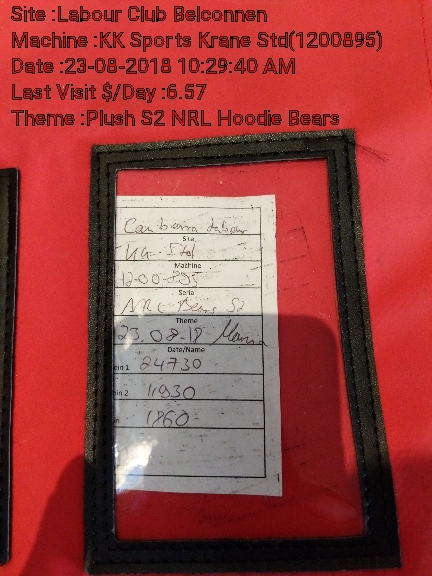 Site :Labour Club Belconnen
Machine :KK Sports Krane Std(1200895)
Date :23-08-2018 10:29:40 AM
Last Visit $/Day :6.57
Theme :Plush S2 NRL Hoodie Bears
Canberra Labour
Site
KK- Std
Machine
12-00-895
Seria
NRL Bears S2
Theme
23.08-18
Date/Name
oin 1 24730
oin 2 11930
in 1860